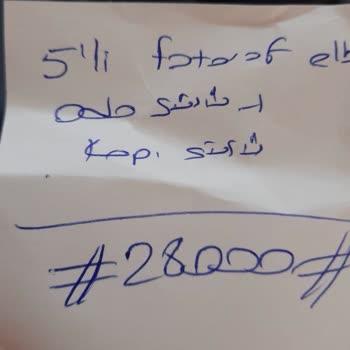 5'li fotoraf elb
oda süsü
Kapı süsü
#28000#